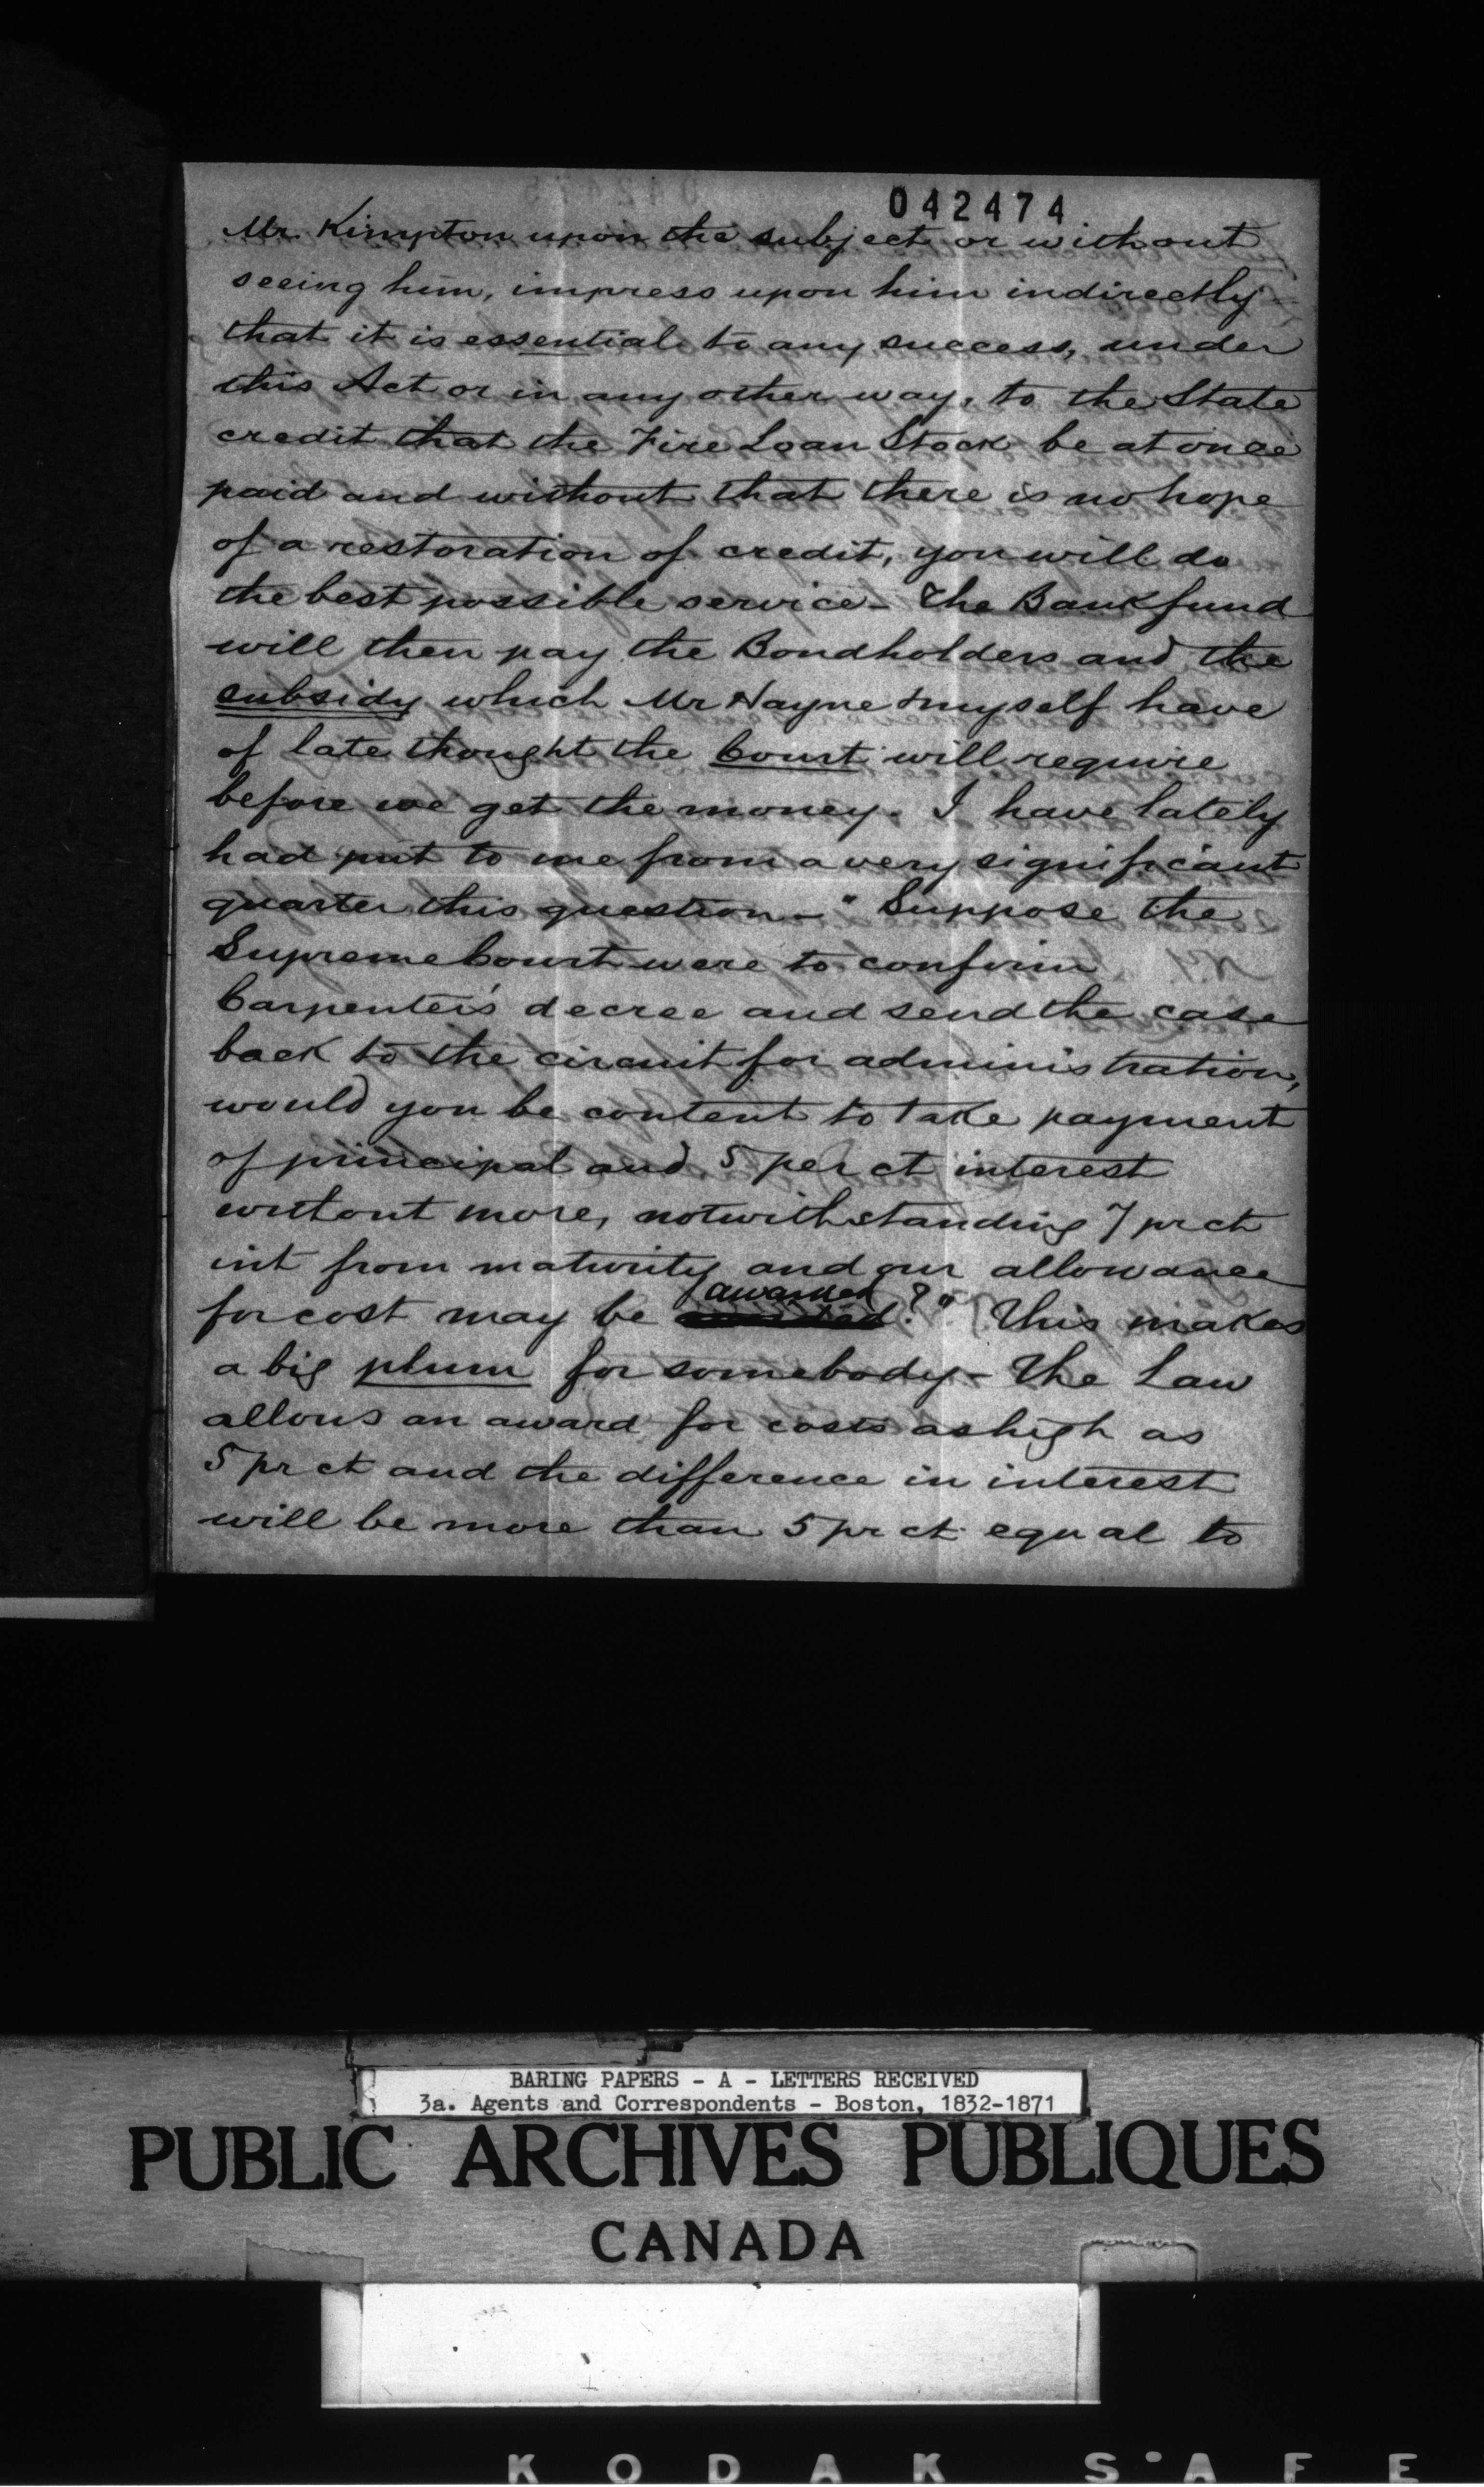 042474
Mr. Kimpton upon the subject or without
seeing him, impress upon him indirectly
that it is essential to any success, under
this Act or in any other way, to the State
credit that the Fire Loan Stock be at once
paid and without that there is no hope
of a restoration of credit, you will do
the best possible service - The Bank fund
will then pay the Bondholders and the
subsidy which Mr Hayne & myself have
of late thought the Court will require
before we get the money. I have lately
had put to me from a very significant
quarter this question - "Suppose the
Supreme Court were to confirm
Carpenter's decree and send the case
back to the circuit for administration,
would you be content to take payment
of principal and 5 per ct interest
without more, notwithstanding 7 pr ct
int from maturity and our allowance
for cost may be awarded?" This makes
a big plum for somebody - The Law
allows an award for costs as high as
5 pr ct and the difference in interest
will be more than 5 pr ct equal to
BARING PAPERS - A - LETTERS RECEIVED
3a. Agents and Correspondents - Boston, 1832-1871
PUBLIC ARCHIVES PUBLIQUES
CANADA
KODAK SAFE